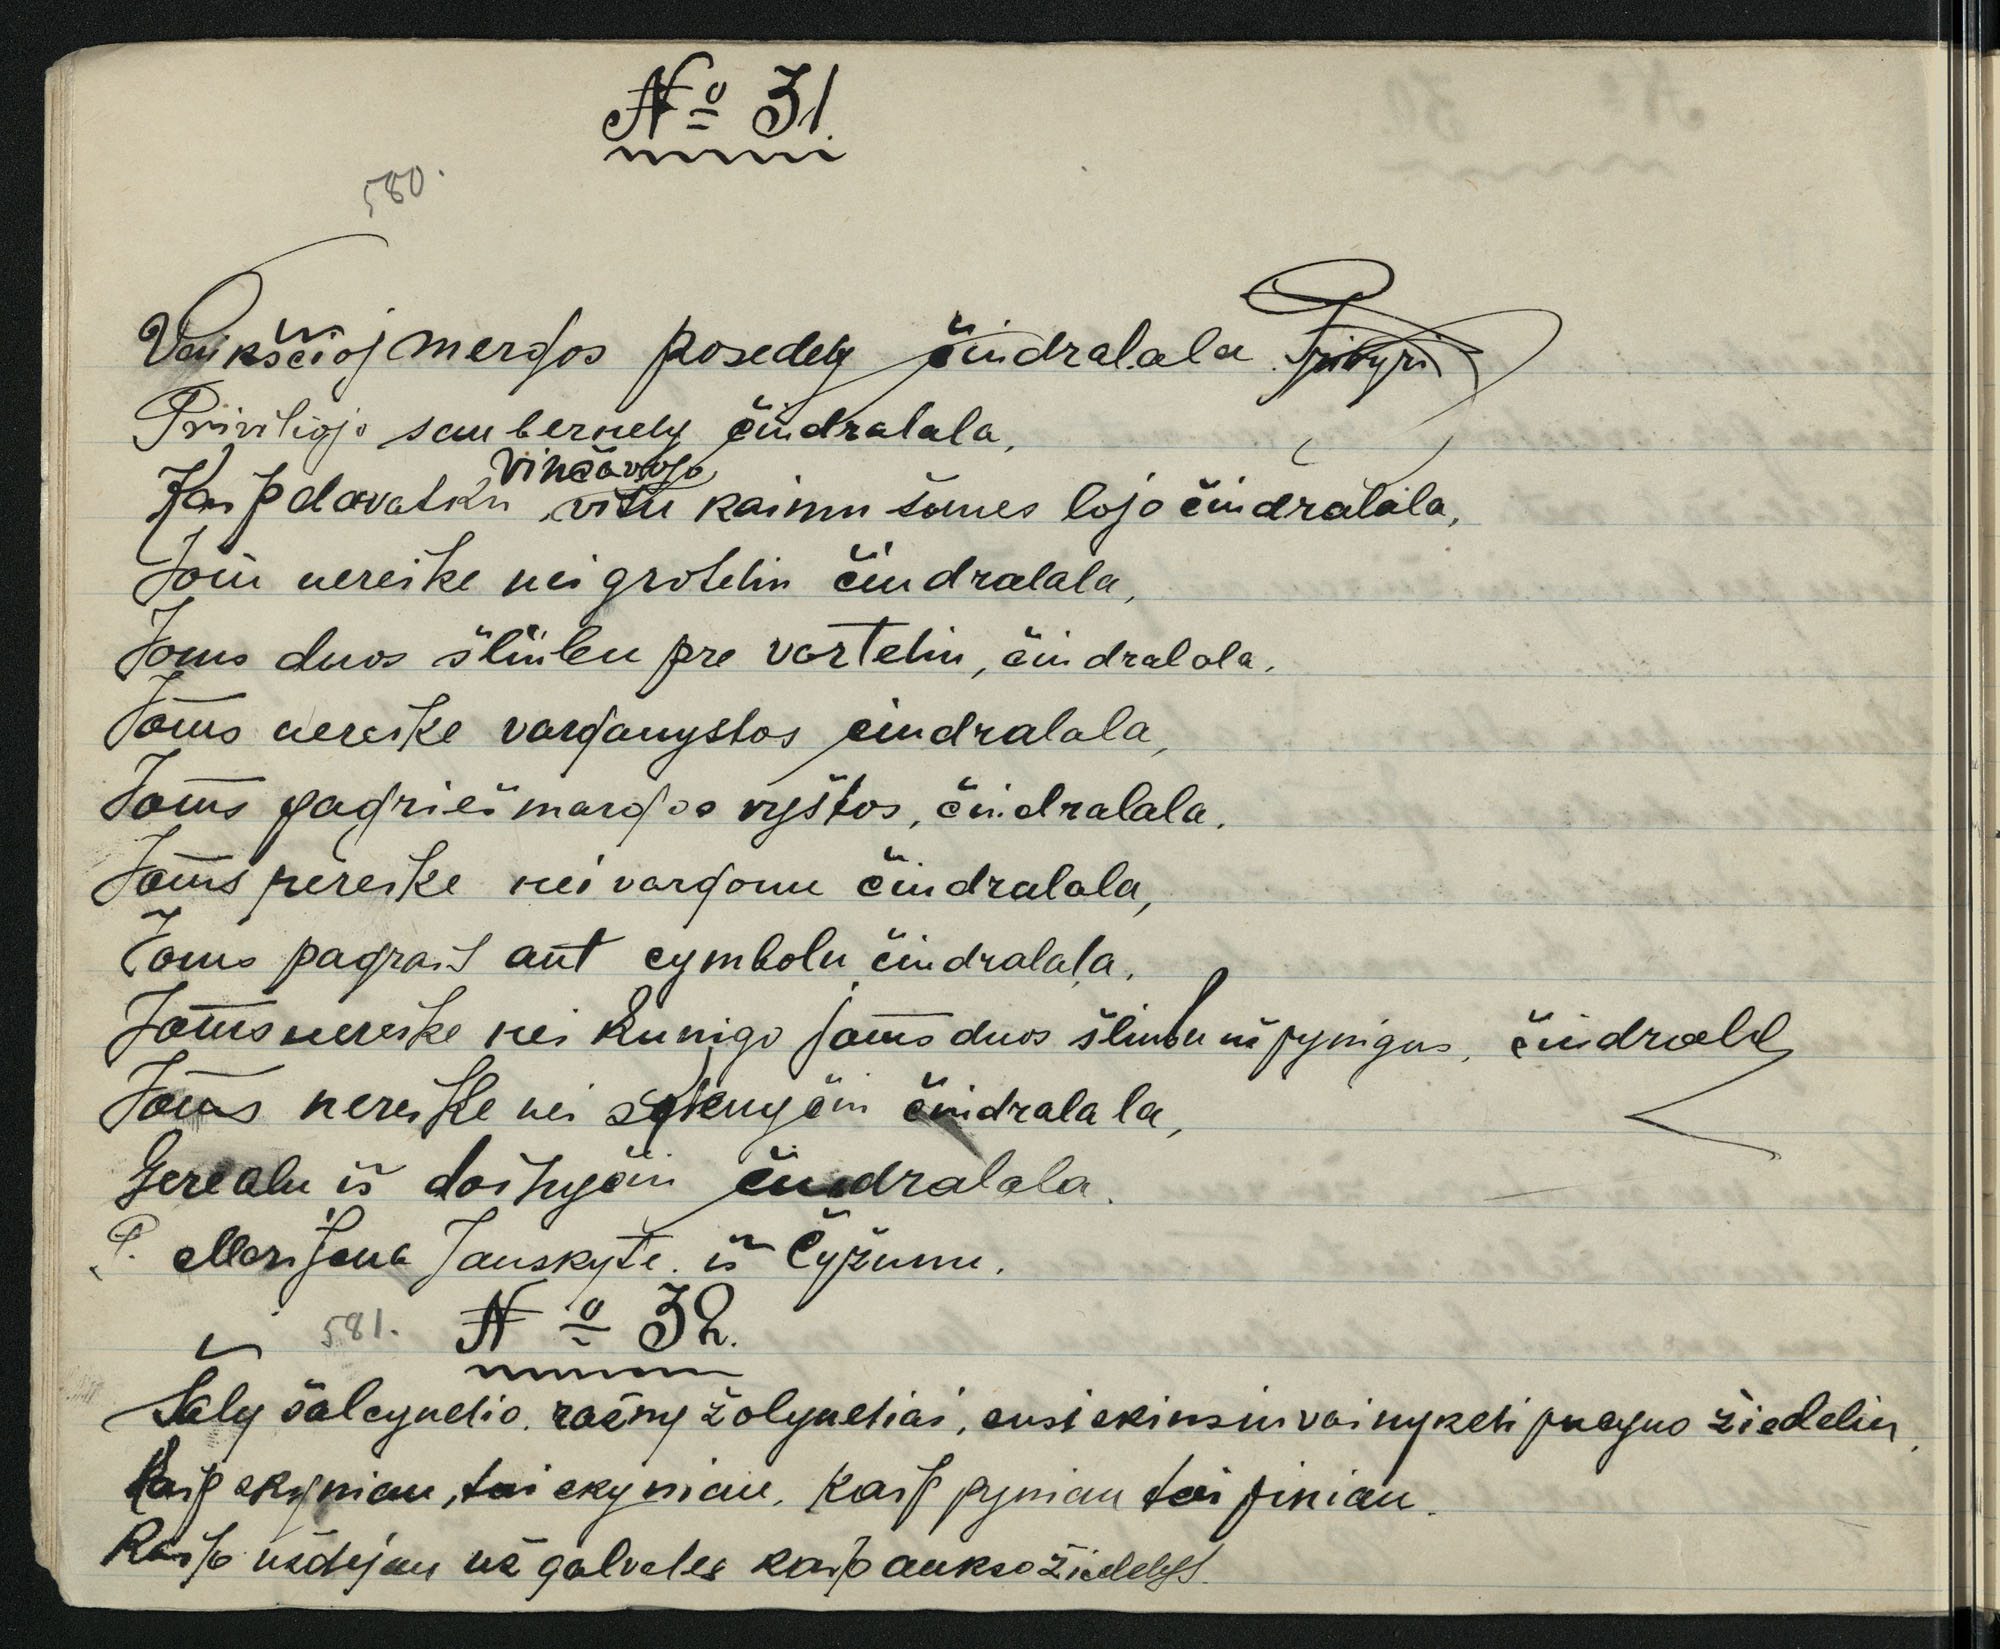 № 31.
580.
Vaikščioj mergos posedely čindralala
Priviliojo sau bernely čindralala,
vinčavojo
Kaip davatku visu kaimu šunes lojo čindralala,
Jom nereike nei grotelin čindralala,
Joms duos šliubu pre vartelin, čindralala.
Joms nereike varganystos čindralala,
Joms pagrieš margos vyštos, čindralala.
Joms nereike nei vargonu čindralala,
Joms pagrais ant cymbolu čindralala.
Joms nereike nei kunigo joms duos šliubu už pynigus, čindralal
Joms nereike nei čindralala,
Gere alu iš čindralala.
P. Marijona Janskyte. iš Čyžunu.
581. № 32.
Šaly šalcynelio.ražny žolyneliai, ensiskinsiu vainykeli pucyno žiedelin.
Kaip skyniau, tai skyniau, kaip pyniau tai piniau.
Kaip uždėjau už galveles kaip aukso žiedelys.